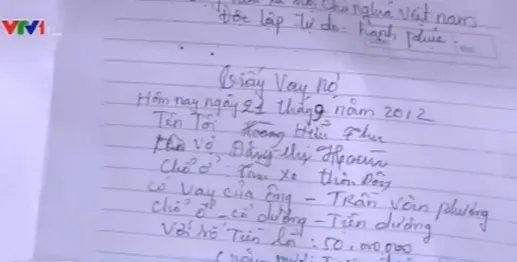 VTV1
hội chủ nghĩa việt nam
Độc lập tự do hạnh phúc
Giấy Vay nợ
Hôm nay ngày 21 tháng 9 năm 2012
Tên Tôi Hoàng Hiểu Thu
vợ Đặng thị
Chỗ ở Tam xá thôn Đông
có vay của ông - Trần văn phương
chỗ ở - cổ dương - Tiên dương
Với số Tiền là : 50,000,000